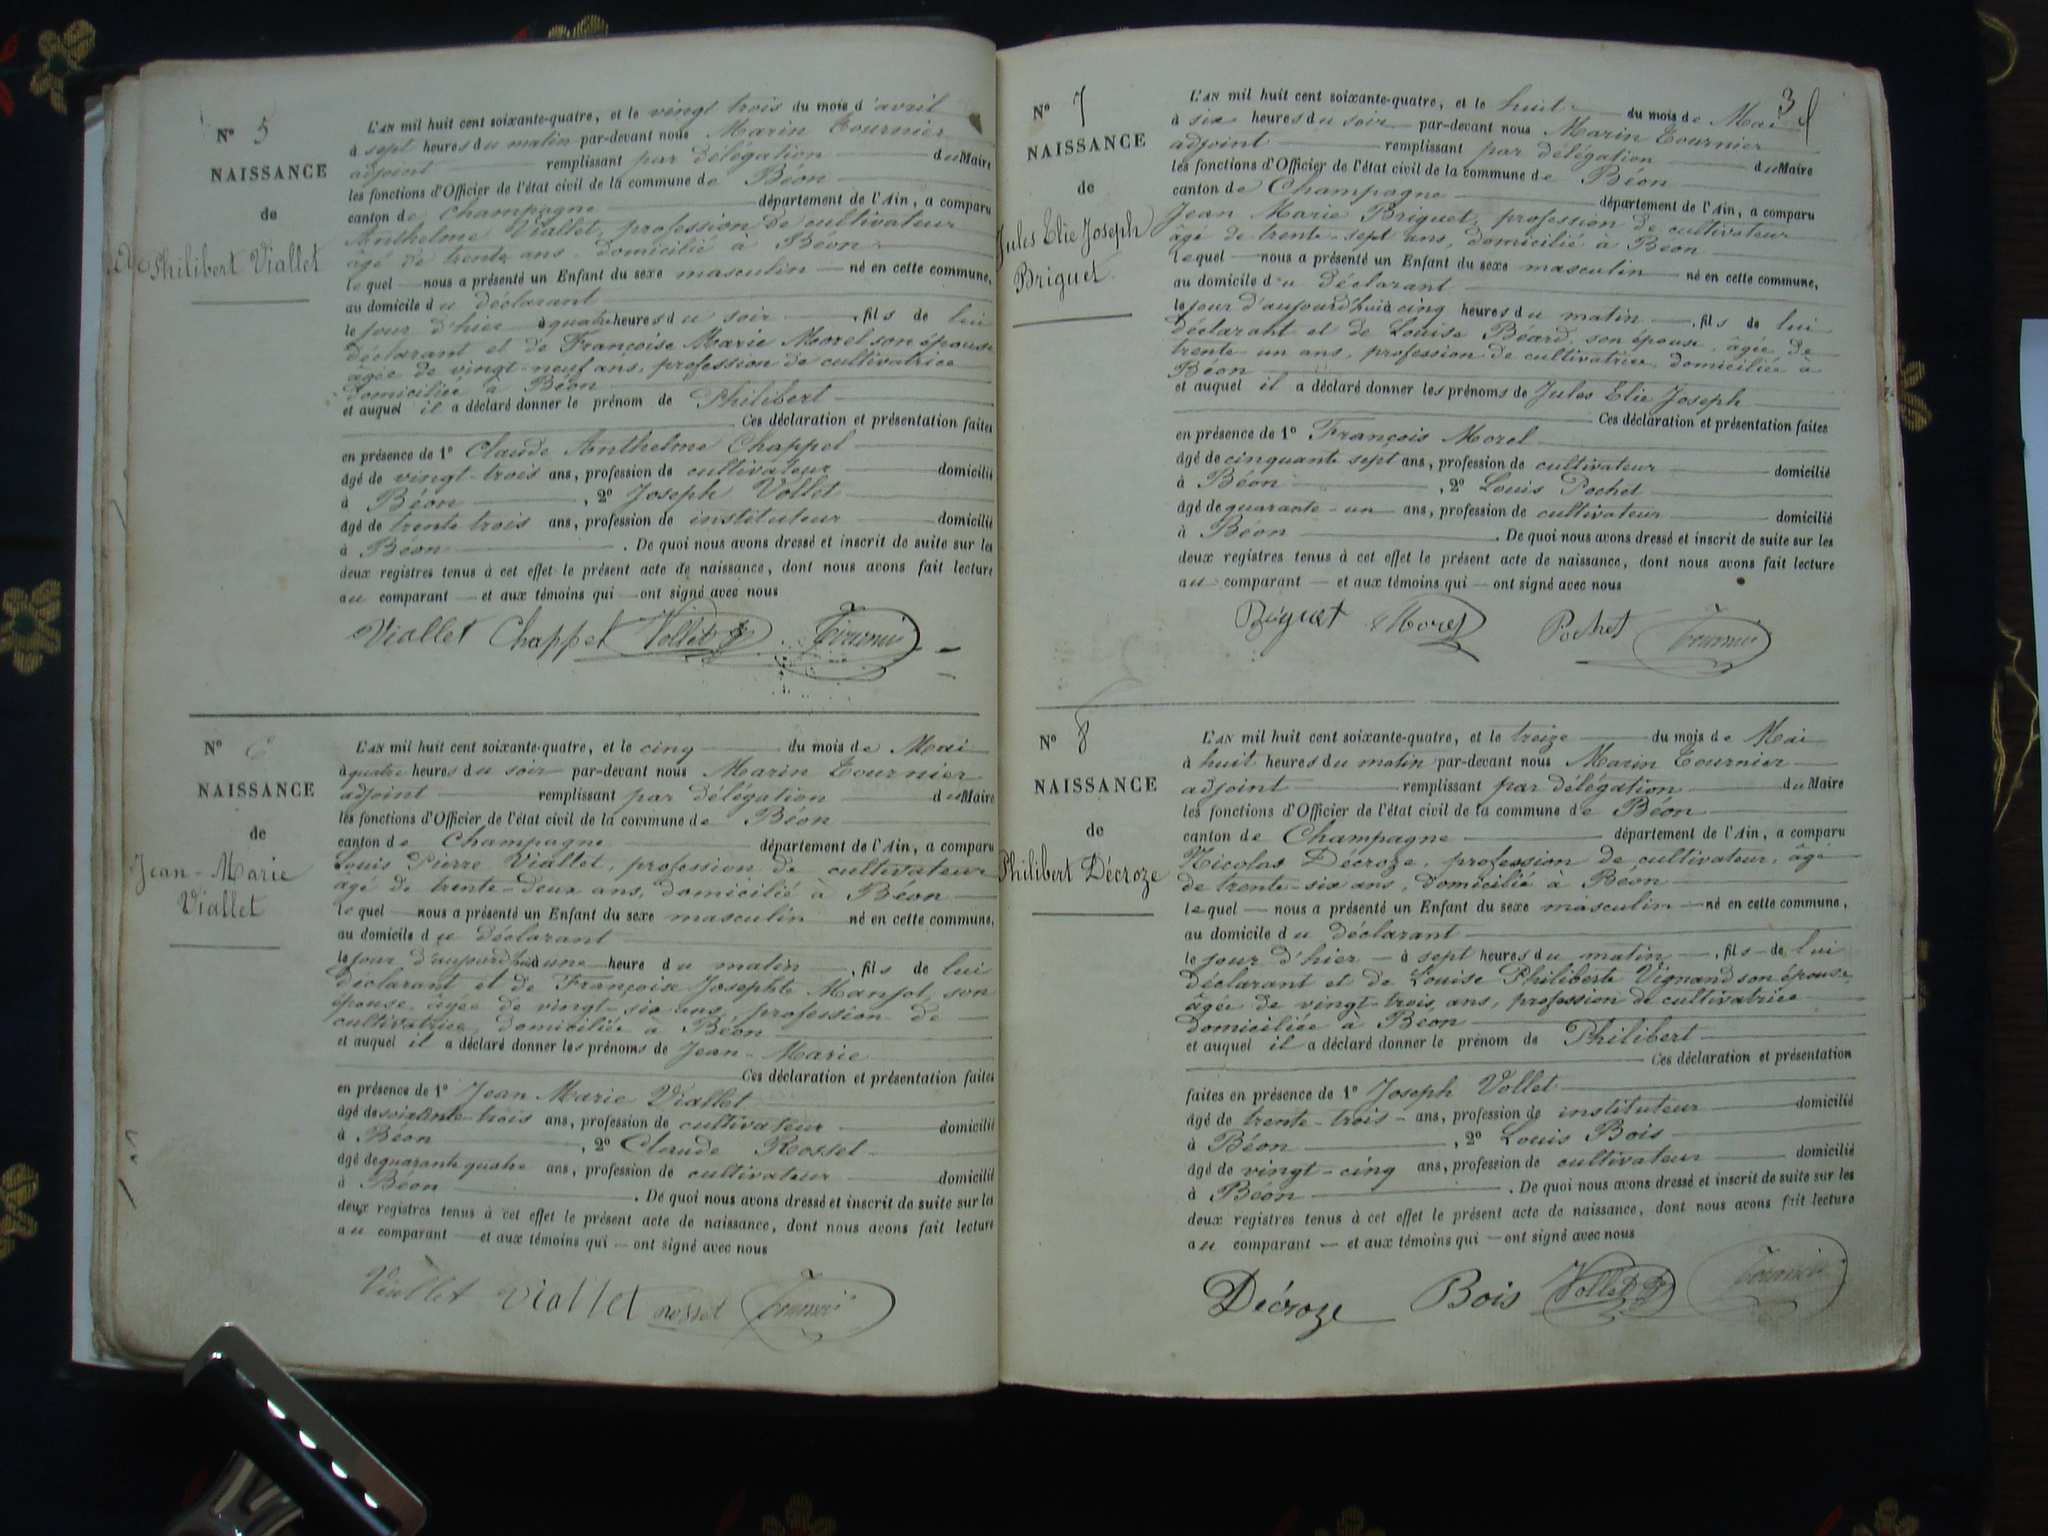 N° 5
NAISSANCE
de
Philibert Viallet
L'AN mil huit cent soixante-quatre, et le vingt trois du mois d'avril
à sept heures du matin par-devant nous Marin Tournier
adjoint remplissant par délégation du Maire
les fonctions d'Officier de l'état civil de la commune de Béon
canton de Champagne département de l'Ain, a comparu
Anthelme Viallet, profession de cultivateur
âgé de trente ans, domicilié à Béon
lequel nous a présenté un Enfant du sexe masculin né en cette commune,
au domicile du déclarant
le jour d'hier à quatre heures du soir, fils de lui
déclarant et de Françoise Marie Morel son épouse
âgée de vingt-neuf ans, profession de cultivatrice
domiciliée à Béon
et auquel il a déclaré donner le prénom de Philibert
Ces déclaration et présentation faites
en présence de 1° Claude Anthelme Chappel
âgé de vingt-trois ans, profession de cultivateur domicilié
à Béon, 2° Joseph Vollet
âgé de trente trois ans, profession de instituteur domicilié
à Béon. De quoi nous avons dressé et inscrit de suite sur les
deux registres tenus à cet effet le présent acte de naissance, dont nous avons fait lecture
au comparant et aux témoins qui ont signé avec nous
Viallet Chappel Vollet Tournier
N° 6
NAISSANCE
de
Jean-Marie
Viallet
L'AN mil huit cent soixante-quatre, et le cinq du mois de Mai
à quatre heures du soir par-devant nous Marin Tournier
adjoint remplissant par délégation du Maire
les fonctions d'Officier de l'état civil de la commune de Béon
canton de Champagne département de l'Ain, a comparu
Louis Pierre Viallet, profession de cultivateur
âgé de trente-deux ans, domicilié à Béon
lequel nous a présenté un Enfant du sexe masculin né en cette commune,
au domicile du déclarant
le jour d'aujourd'hui à une heure du matin, fils de lui
déclarant et de Françoise Josephte Manjot, son
épouse, âgée de vingt-six ans, profession de
cultivatrice, domiciliée à Béon
et auquel il a déclaré donner les prénoms de Jean-Marie
Ces déclaration et présentation faites
en présence de 1° Jean Marie Viallet
âgé de soixante-trois ans, profession de cultivateur domicilié
à Béon, 2° Claude Rosset
âgé de quarante quatre ans, profession de cultivateur domicilié
à Béon. De quoi nous avons dressé et inscrit de suite sur les
deux registres tenus à cet effet le présent acte de naissance, dont nous avons fait lecture
au comparant et aux témoins qui ont signé avec nous
Viallet Viallet Rosset Tournier
3
N° 7
NAISSANCE
de
Jules Elie Joseph
Briguet
L'AN mil huit cent soixante-quatre, et le huit du mois de Mai
à six heures du soir par-devant nous Marin Tournier
adjoint remplissant par délégation du Maire
les fonctions d'Officier de l'état civil de la commune de Béon
canton de Champagne département de l'Ain, a comparu
Jean Marie Briguet, profession de cultivateur
âgé de trente-sept ans, domicilié à Béon
lequel nous a présenté un Enfant du sexe masculin né en cette commune,
au domicile du déclarant
le jour d'aujourd'hui à cinq heures du matin, fils de lui
déclarant et de Louise Béard, son épouse, âgée de
trente-un ans, profession de cultivatrice, domiciliée à
Béon
et auquel il a déclaré donner les prénoms de Jules Elie Joseph
Ces déclaration et présentation faites
en présence de 1° François Morel
âgé de cinquante sept ans, profession de cultivateur domicilié
à Béon, 2° Louis Pochet
âgé de quarante-un ans, profession de cultivateur domicilié
à Béon. De quoi nous avons dressé et inscrit de suite sur les
deux registres tenus à cet effet le présent acte de naissance, dont nous avons fait lecture
au comparant et aux témoins qui ont signé avec nous
Briguet Morel Pochet Tournier
N° 8
NAISSANCE
de
Philibert Décroze
L'AN mil huit cent soixante-quatre, et le treize du mois de Mai
à huit heures du matin par-devant nous Marin Tournier
adjoint remplissant par délégation du Maire
les fonctions d'Officier de l'état civil de la commune de Béon
canton de Champagne département de l'Ain, a comparu
Nicolas Décroze, profession de cultivateur, âgé
de trente-six ans, domicilié à Béon
lequel nous a présenté un Enfant du sexe masculin né en cette commune,
au domicile du déclarant
le jour d'hier à sept heures du matin, fils de lui
déclarant et de Louise Philiberte Vignand son épouse
âgée de vingt-trois ans, profession de cultivatrice
domiciliée à Béon
et auquel il a déclaré donner le prénom de Philibert
Ces déclaration et présentation
faites en présence de 1° Joseph Vollet
âgé de trente-trois ans, profession de instituteur domicilié
à Béon, 2° Louis Bois
âgé de vingt-cinq ans, profession de cultivateur domicilié
à Béon. De quoi nous avons dressé et inscrit de suite sur les
deux registres tenus à cet effet le présent acte de naissance, dont nous avons fait lecture
au comparant et aux témoins qui ont signé avec nous
Décroze Bois Vollet Tournier